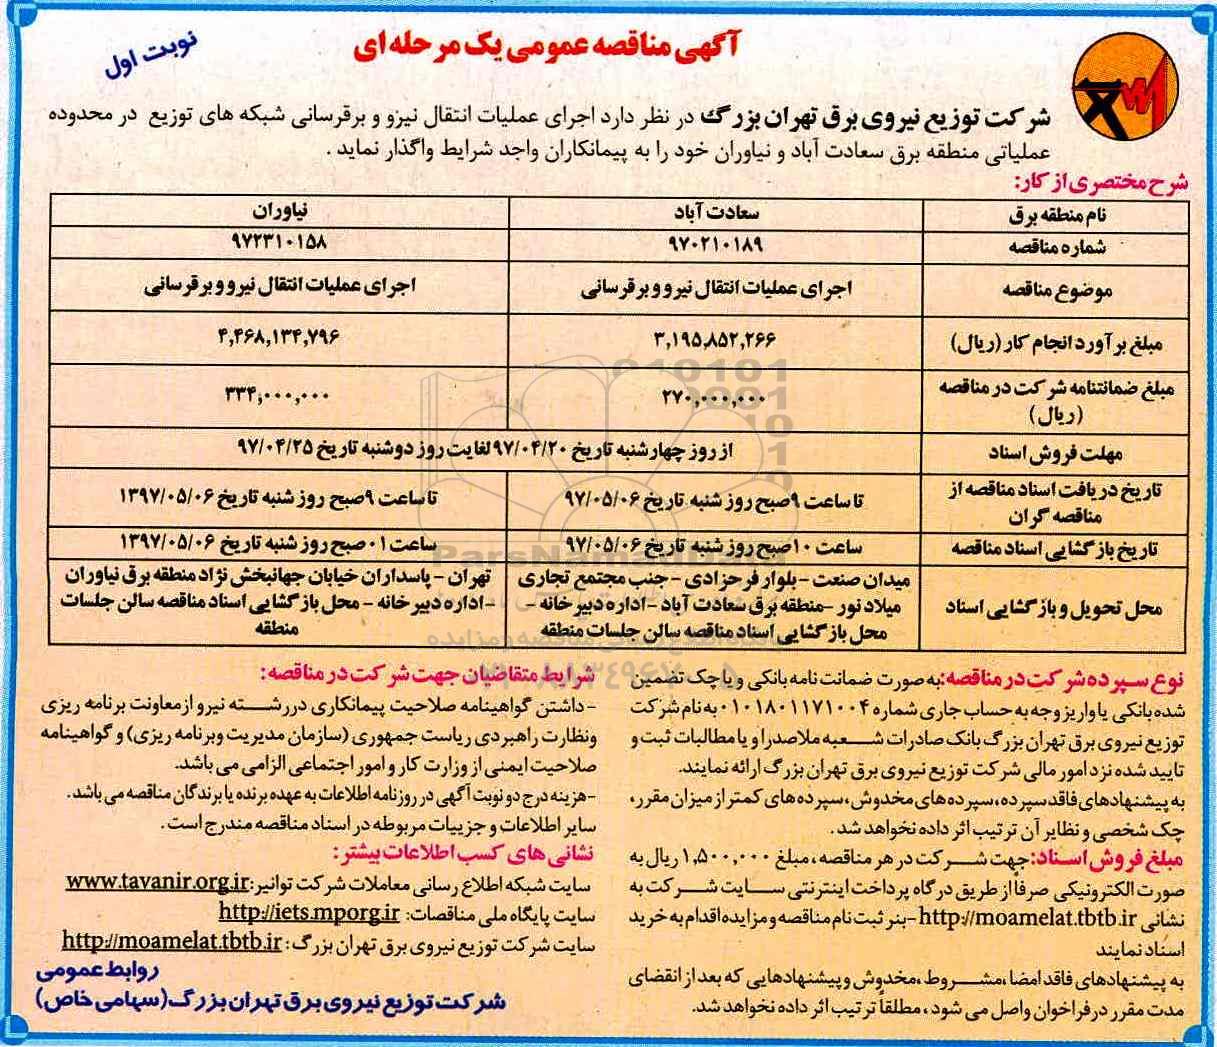 نوبت اول
آگهی مناقصه عمومی یک مرحله ای
شرکت توزیع نیروی برق تهران بزرگ در نظر دارد اجرای عملیات انتقال نیرو و برقرسانی شبکه های توزیع در محدوده
عملیاتی منطقه برق سعادت آباد و نیاوران خود را به پیمانکاران واجد شرایط واگذار نماید .
شرح مختصری از کار:
نام منطقه برق سعادت آباد نیاوران
شماره مناقصه ۹۷۰۲۱۰۱۸۹ ۹۷۲۳۱۰۱۵۸
موضوع مناقصه اجرای عملیات انتقال نیرو و برقرسانی اجرای عملیات انتقال نیرو و برقرسانی
مبلغ برآورد انجام کار (ریال) ۳,۱۹۵,۸۵۲,۲۶۶ ۴,۴۶۸,۱۳۴,۷۹۶
مبلغ ضمانتنامه شرکت در مناقصه
(ریال) ۲۷۰,۰۰۰,۰۰۰ ۳۳۴,۰۰۰,۰۰۰
مهلت فروش اسناد از روز چهارشنبه تاریخ ۹۷/۰۴/۲۰ لغایت روز دوشنبه تاریخ ۹۷/۰۴/۲۵
تاریخ دریافت اسناد مناقصه از
مناقصه گران تا ساعت ۹صبح روز شنبه تاریخ ۹۷/۰۵/۰۶ تا ساعت ۹صبح روز شنبه تاریخ ۱۳۹۷/۰۵/۰۶
تاریخ بازگشایی اسناد مناقصه ساعت ۱۰صبح روز شنبه تاریخ ۹۷/۰۵/۰۶ ساعت ۰۱صبح روز شنبه تاریخ ۱۳۹۷/۰۵/۰۶
محل تحویل و بازگشایی اسناد
میدان صنعت - بلوار فرحزادی - جنب مجتمع تجاری
میلاد نور - منطقه برق سعادت آباد - اداره دبیرخانه -
محل بازگشایی اسناد مناقصه سالن جلسات منطقه
تهران - پاسداران خیابان جهانبخش نژاد منطقه برق نیاوران
- اداره دبیرخانه - محل بازگشایی اسناد مناقصه سالن جلسات
منطقه
نوع سپرده شرکت در مناقصه: به صورت ضمانت نامه بانکی و یا چک تضمین
شده بانکی یا واریز وجه به حساب جاری شماره ۰۱۰۱۸۰۱۱۷۱۰۰۴ به نام شرکت
توزیع نیروی برق تهران بزرگ بانک صادرات شعبه ملاصدرا و یا مطالبات ثبت و
تایید شده نزد امور مالی شرکت توزیع نیروی برق تهران بزرگ ارائه نمایند.
به پیشنهادهای فاقد سپرده، سپرده های مخدوش، سپرده های کمتر از میزان مقرر،
چک شخصی و نظایر آن ترتیب اثر داده نخواهد شد .
مبلغ فروش اسناد: جهت شرکت در هر مناقصه، مبلغ ۱,۵۰۰,۰۰۰ ریال به
صورت الکترونیکی صرفاً از طریق درگاه پرداخت اینترنتی سایت شرکت به
نشانی http://moamelat.tbtb.ir -بنر ثبت نام مناقصه و مزایده اقدام به خرید
اسناد نمایند
به پیشنهادهای فاقد امضا ،مشروط ،مخدوش و پیشنهادهایی که بعد از انقضای
مدت مقرر در فراخوان واصل می شود ، مطلقاً ترتیب اثر داده نخواهد شد.
شرایط متقاضیان جهت شرکت در مناقصه:
-داشتن گواهینامه صلاحیت پیمانکاری در رشته نیرو از معاونت برنامه ریزی
ونظارت راهبردی ریاست جمهوری (سازمان مدیریت وبرنامه ریزی) و گواهینامه
صلاحیت ایمنی از وزارت کار و امور اجتماعی الزامی می باشد.
-هزینه درج دو نوبت آگهی در روزنامه اطلاعات به عهده برنده یا برندگان مناقصه می باشد .
سایر اطلاعات و جزییات مربوطه در اسناد مناقصه مندرج است .
نشانی های کسب اطلاعات بیشتر :
سایت شبکه اطلاع رسانی معاملات شرکت توانیر: www.tavanir.org.ir
سایت پایگاه ملی مناقصات: http://iets.mporg.ir
سایت شرکت توزیع نیروی برق تهران بزرگ : http://moamelat.tbtb.ir
روابط عمومی
شرکت توزیع نیروی برق تهران بزرگ (سهامی خاص)